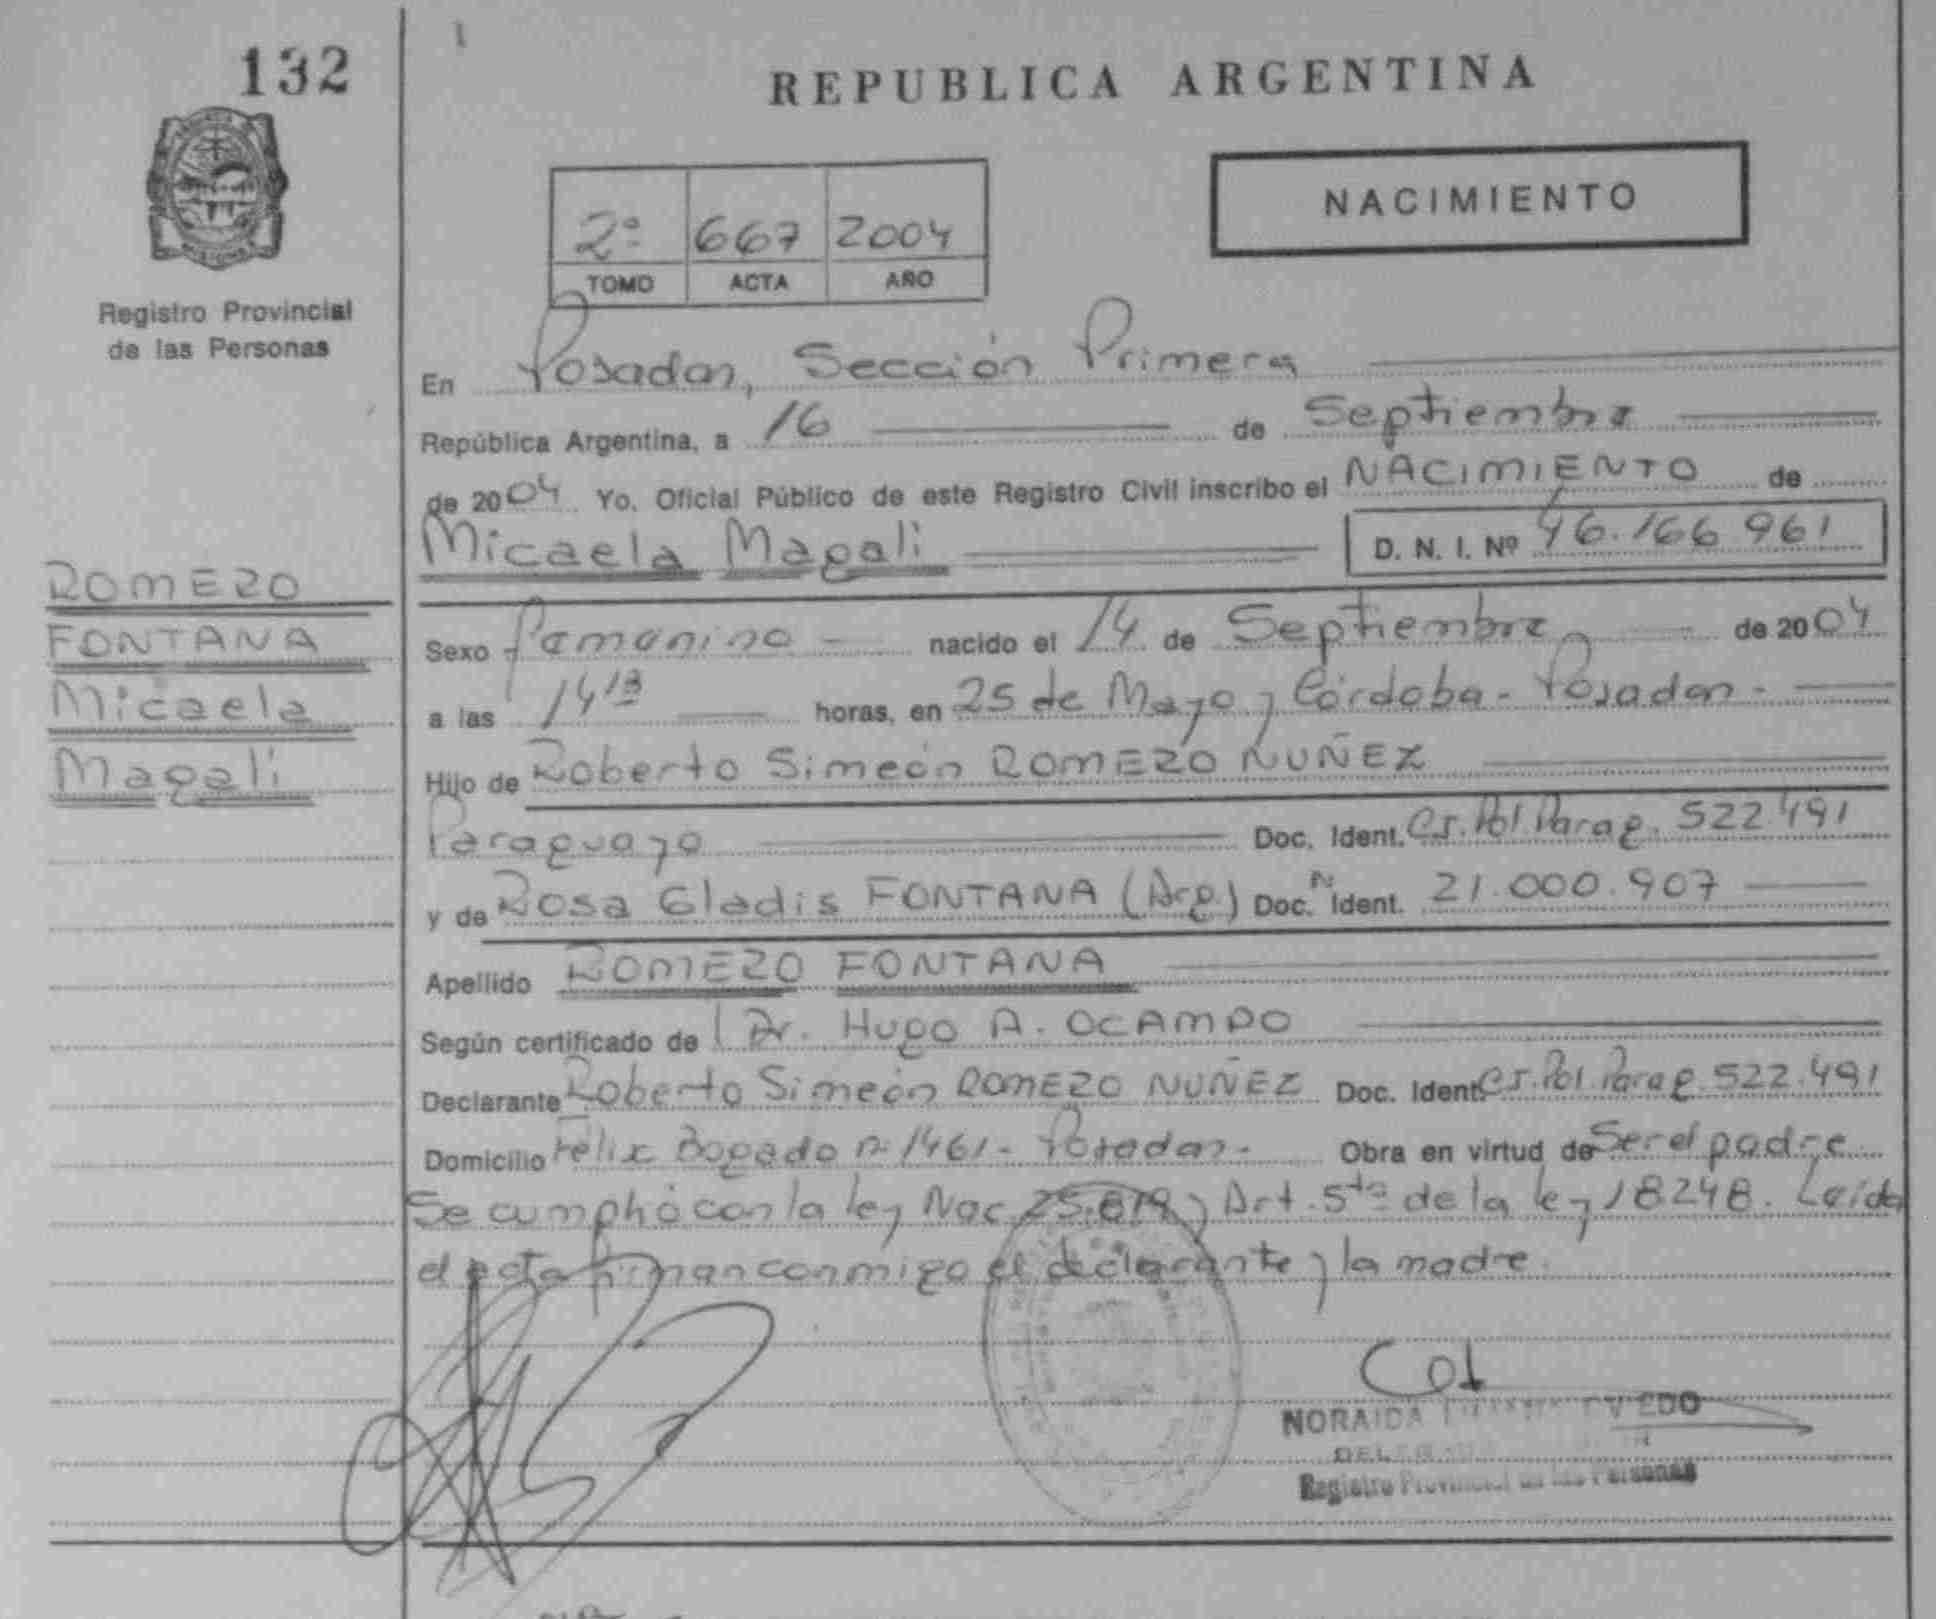 132
REPUBLICA ARGENTINA
NACIMIENTO
2º 667 2004
TOMO ACTA AÑO
Registro Provincial
de las Personas
En Posadas, Sección Primera
República Argentina, a 16 de Septiembre
de 2004 Yo. Oficial Público de este Registro Civil inscribo el NACIMIENTO de
Micaela Magali D. N. I. Nº 46.166.961
ROMERO
FONTANA
Micaela
Magali
Sexo Femenino nacido el 14 de Septiembre de 2004
a las 14 horas, en 25 de Mayo y Córdoba - Posadas -
Hijo de Roberto Simeón ROMERO NUÑEZ
Paraguayo Doc. Ident. Cs. Pol. Parag. 522.491
y de Rosa Gladis FONTANA (Arg.) Doc. N Ident. 21.000.907
Apellido ROMERO FONTANA
Según certificado de Dr. Hugo A. OCAMPO
Declarante Roberto Simeón ROMERO NUÑEZ Doc. Ident. Cs. Pol. Parag. 522.491
Domicilio Félix Bogado nº 1461 - Posadas - Obra en virtud de Ser el padre
Se cumplió con la ley Nac. 25.819 y Art. 5to de la ley 18248. Leída
el acta firman conmigo el declarante y la madre.
NORAIDA
Registro Provincial de las Personas